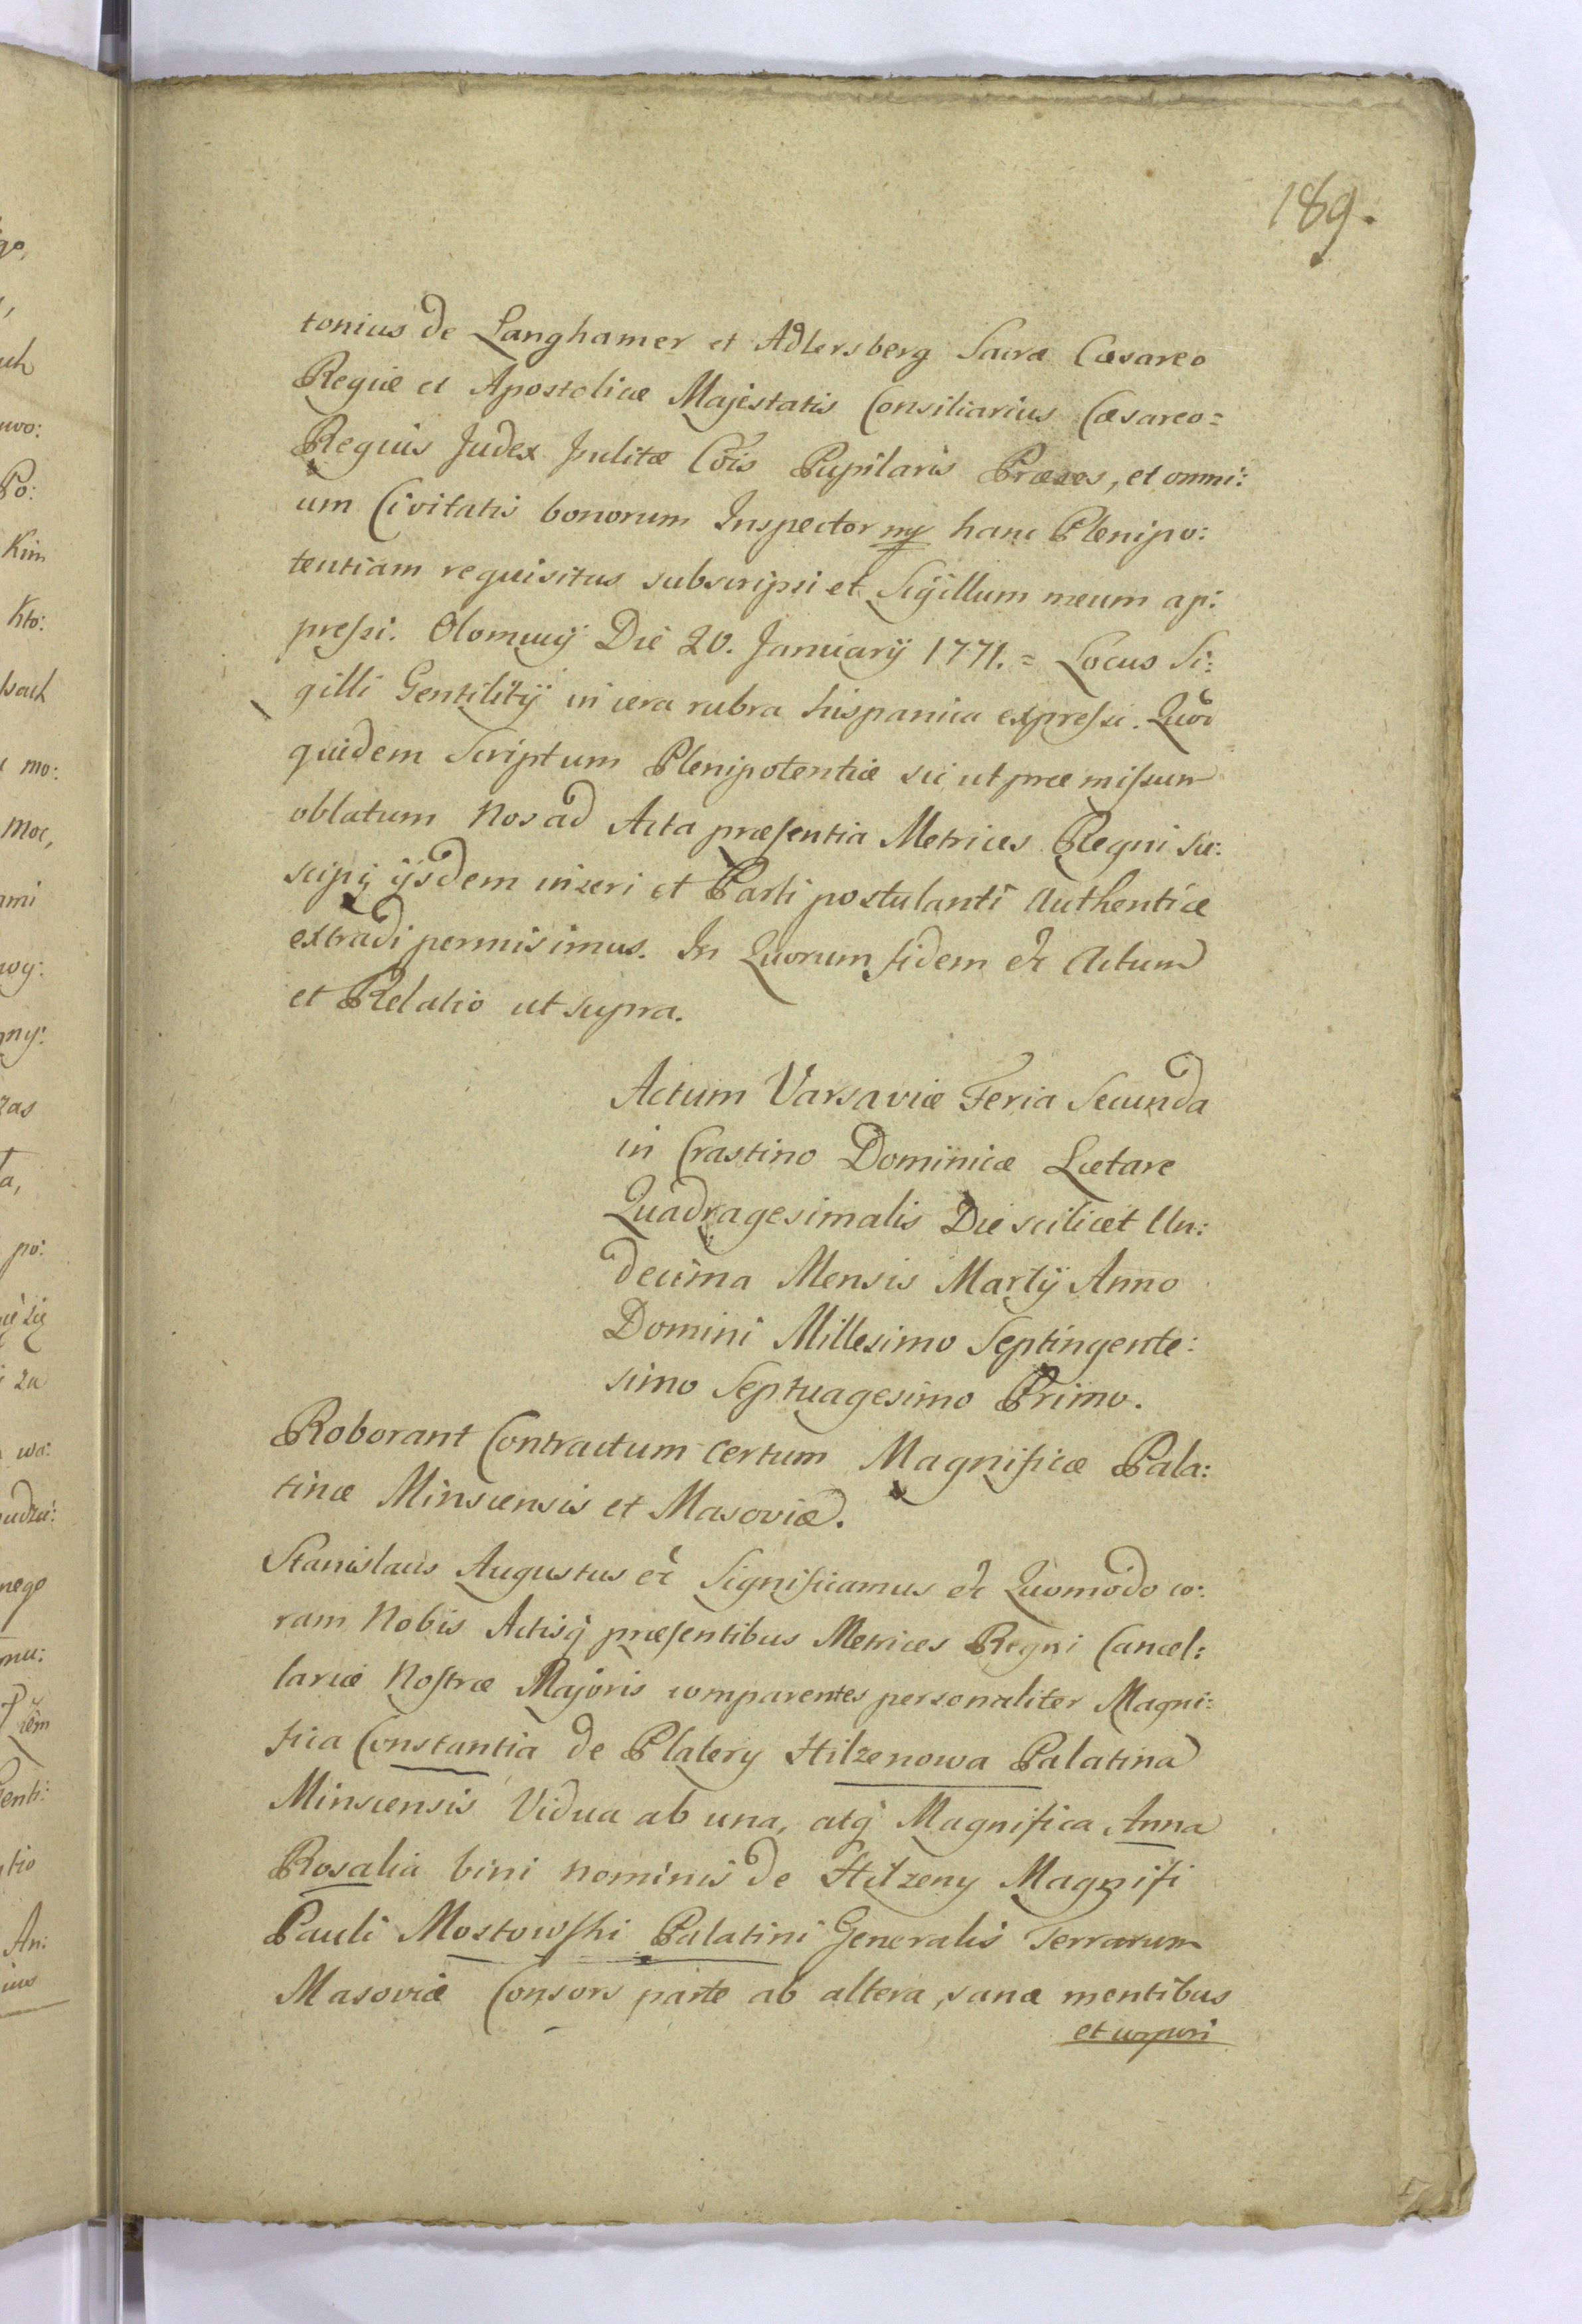 189.
tonius de Langhamer et Adlersberg Sacræ Cæsareo
Regiæ et Apostolicæ Majestatis Consiliarius Cæsareo=
Regius Judex Inclitæ Cõis Pupilaris Præses, et omni:
um Civitatis bonorum Inspector mp hanc Plenipo:
tentiam requisitus subscripsi et Sigillum meum ap:
preſsi. Olomucij Die 20. Januarij 1771. = Locus Si:
gilli Gentilitij in cera rubra hispanica expreſsi. Quod
quidem Scriptum Plenipotentiæ sic ut præmiſsum
oblatum Nos ad Acta præſentia Metrices Regni su:
scipi ijsdem inseri et Parti postulanti Authenticæ
extradi permisimus. In Quorum fidem &c Actum
et Relatio ut supra.
Actum Varsaviæ Feria Secunda
in Crastino Dominicæ Lætare
Quadragesimalis Die scilicet Un:
decima Mensis Martij Anno
Domini Millesimo Septingente:
simo Septuagesimo Primo.
Roborant Contractum certum Magnificæ Pala:
tinæ Minscensis et Masoviæ.
Stanislaus Augustus &c Significamus &c Quomodo co:
ram Nobis Actisq̃ præſentibus Metrices Regni Cancel:
lariæ Noſtræ Majoris comparentes personaliter Magni:
fica Constantia de Platery Hilzenowa Palatina
Minscensis Vidua ab una, atq̃ Magnifica Anna
Rosalia bini nominis de Hilzeny Magnifi
Pauli Mostowſki Palatini Generalis Terrarum
Masoviæ Consors parte ab altera, sanæ mentibus
et corpori